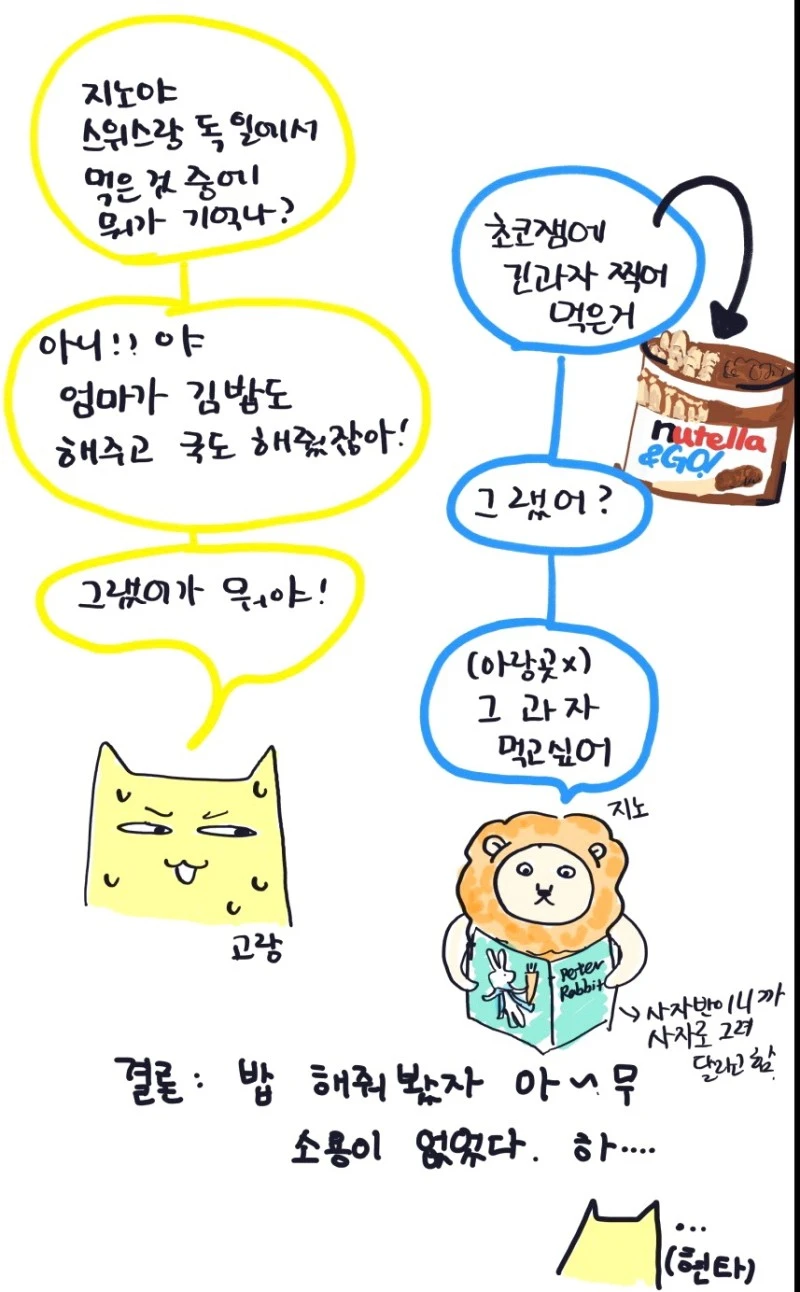 지노야
스위스랑 독일에서
먹은 것 중에
뭐가 기억나?
초코잼에
긴과자 찍어
먹은거
nutella
&GO!
아니!! 야
엄마가 김밥도
해주고 국도 해줬잖아!
그랬어?
그랬어가 뭐야!
(아랑곳x)
그 과자
먹고싶어
지노
고랑
Peter
Rabbit
→ 사자반이니까
사자로 그려
달라고 함
결론: 밥 해줘봤자 아~무
소용이 없었다. 하····
...
(현타)